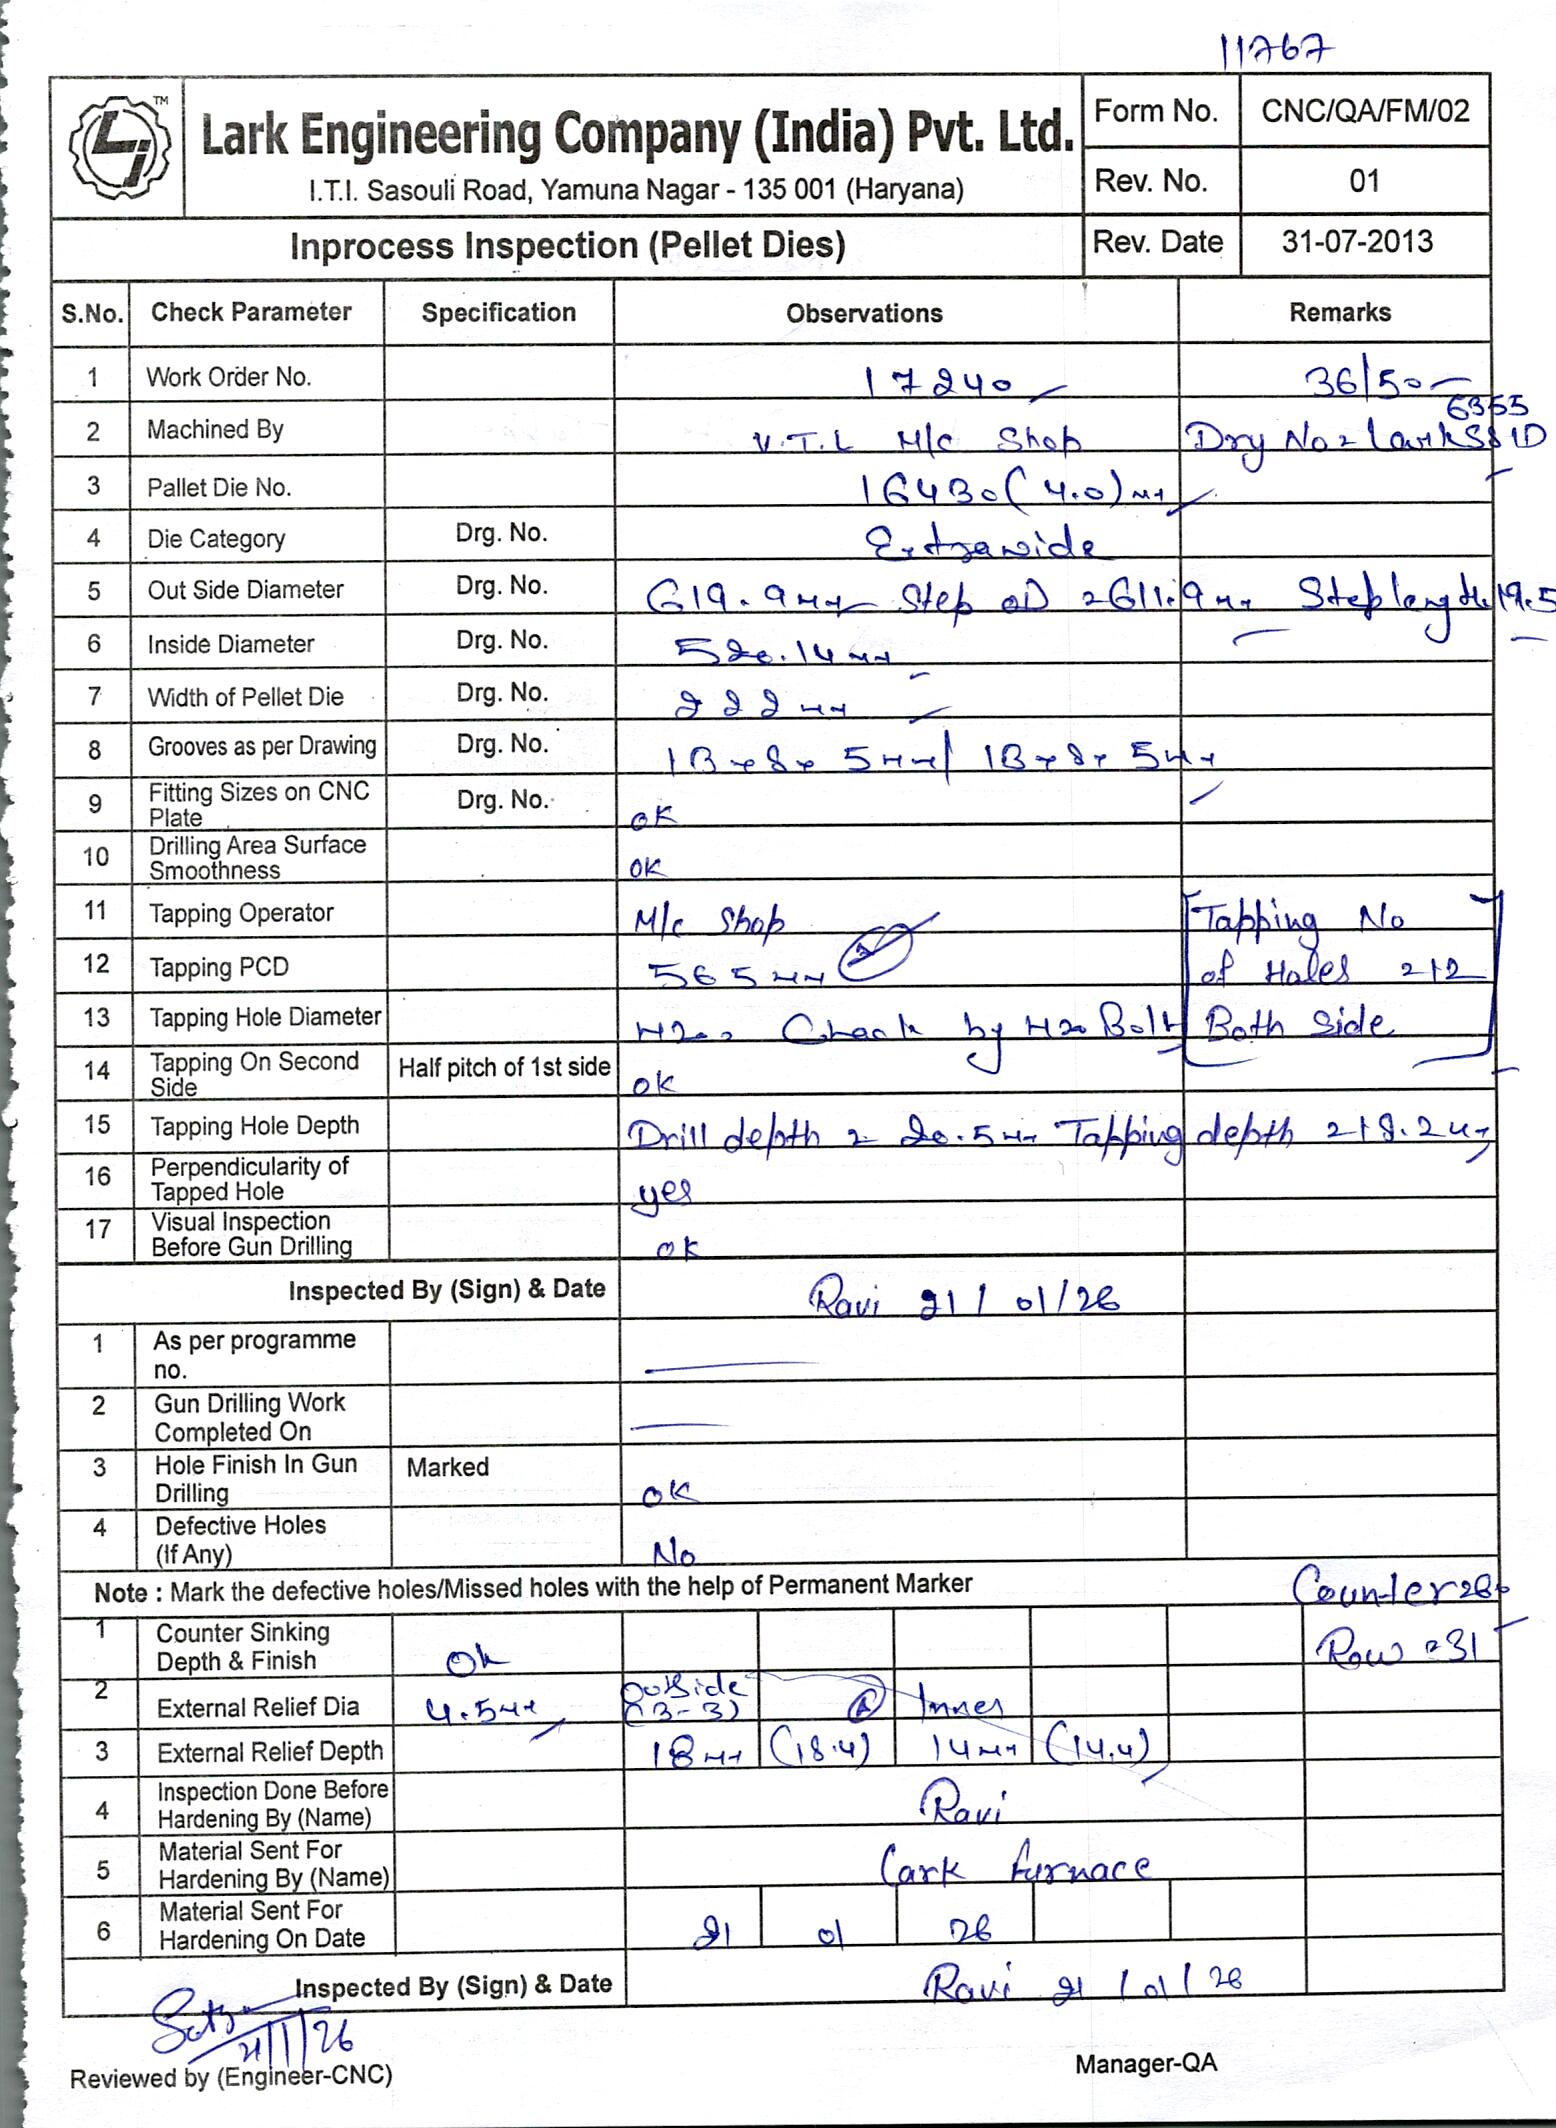 11767
Lark Engineering Company (India) Pvt. Ltd.
I.T.I. Sasouli Road, Yamuna Nagar - 135 001 (Haryana)
Form No. CNC/QA/FM/02
Rev. No. 01
Inprocess Inspection (Pellet Dies) Rev. Date 31-07-2013
S.No. Check Parameter Specification Observations Remarks
1 Work Order No. 17240 36/50
2 Machined By V.T.L M/c Shop Drg No = Lark
6355
3 Pallet Die No. 16430 (4.0) mm
4 Die Category Drg. No. Extrawide
5 Out Side Diameter Drg. No. 619.9mm Step OD = 611.9mm Step length 19.5
6 Inside Diameter Drg. No. 520.14mm
7 Width of Pellet Die Drg. No. 222mm
8 Grooves as per Drawing Drg. No. 13x8x5mm/ 13x8x5mm
9 Fitting Sizes on CNC Plate Drg. No. ok
10 Drilling Area Surface Smoothness ok
11 Tapping Operator M/c Shop Tapping No
12 Tapping PCD 565mm of Holes = 12
13 Tapping Hole Diameter M20 = Check by M20 Bolt Both Side
14 Tapping On Second Side Half pitch of 1st side ok
15 Tapping Hole Depth Drill depth = 20.5mm Tapping depth = 18.2mm
16 Perpendicularity of Tapped Hole yes
17 Visual Inspection Before Gun Drilling ok
Inspected By (Sign) & Date Ravi 21/01/26
1 As per programme no.
2 Gun Drilling Work Completed On
3 Hole Finish In Gun Drilling Marked ok
4 Defective Holes (If Any) No
Note : Mark the defective holes/Missed holes with the help of Permanent Marker Counter
1 Counter Sinking Depth & Finish Ok Row = 31
2 External Relief Dia 4.5mm Outside (3-3) Inner
3 External Relief Depth 18mm (18.4) 14mm (14.4)
4 Inspection Done Before Hardening By (Name) Ravi
5 Material Sent For Hardening By (Name) Lark furnace
6 Material Sent For Hardening On Date 21 01 26
Inspected By (Sign) & Date Ravi 21/01/26
21/1/26
Reviewed by (Engineer-CNC) Manager-QA